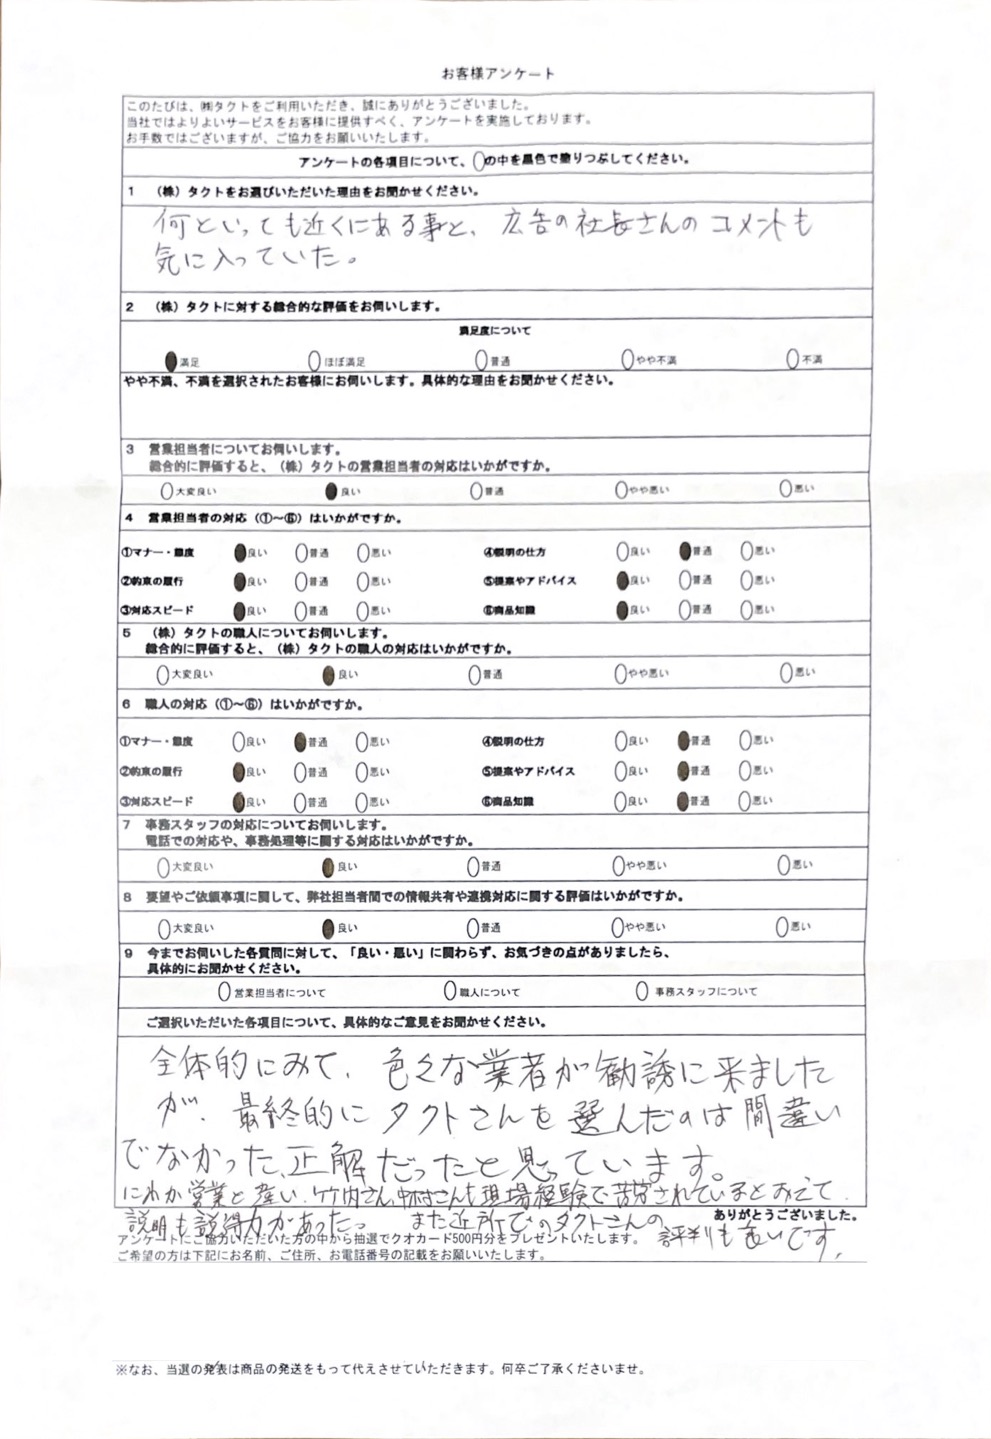 お客様アンケート
このたびは、㈱タクトをご利用いただき、誠にありがとうございました。
当社ではよりよいサービスをお客様に提供すべく、アンケートを実施しております。
お手数ではございますが、ご協力をお願いいたします。
アンケートの各項目について、○の中を黒色で塗りつぶしてください。
1 （株）タクトをお選びいただいた理由をお聞かせください。
何といっても近くにある事と、広告の社長さんのコメントも
気に入っていた。
2 （株）タクトに対する総合的な評価をお伺いします。
満足度について
満足 ほぼ満足 普通 やや不満 不満
やや不満、不満を選択されたお客様にお伺いします。具体的な理由をお聞かせください。
3 営業担当者についてお伺いします。
総合的に評価すると、（株）タクトの営業担当者の対応はいかがですか。
大変良い 良い 普通 やや悪い 悪い
4 営業担当者の対応（①～⑥）はいかがですか。
①マナー・態度 良い 普通 悪い ④説明の仕方 良い 普通 悪い
②約束の履行 良い 普通 悪い ⑤提案やアドバイス 良い 普通 悪い
③対応スピード 良い 普通 悪い ⑥商品知識 良い 普通 悪い
5 （株）タクトの職人についてお伺いします。
総合的に評価すると、（株）タクトの職人の対応はいかがですか。
大変良い 良い 普通 やや悪い 悪い
6 職人の対応（①～⑥）はいかがですか。
①マナー・態度 良い 普通 悪い ④説明の仕方 良い 普通 悪い
②約束の履行 良い 普通 悪い ⑤提案やアドバイス 良い 普通 悪い
③対応スピード 良い 普通 悪い ⑥商品知識 良い 普通 悪い
7 事務スタッフの対応についてお伺いします。
電話での対応や、事務処理等に関する対応はいかがですか。
大変良い 良い 普通 やや悪い 悪い
8 要望やご依頼事項に関して、弊社担当者間での情報共有や連携対応に関する評価はいかがですか。
大変良い 良い 普通 やや悪い 悪い
9 今までお伺いした各質問に対して、「良い・悪い」に関わらず、お気づきの点がありましたら、
具体的にお聞かせください。
営業担当者について 職人について 事務スタッフについて
ご選択いただいた各項目について、具体的なご意見をお聞かせください。
全体的にみて、色々な業者が勧誘に来ました
が、最終的にタクトさんを選んだのは間違い
でなかった、正解だったと思っています。
にわか営業と違い、竹内さん、中村さんも現場経験で苦労されているとみえて、
説明も説得力があった。 また近所でのタクトさんの
ありがとうございました。
評判も良いです。
アンケートにご協力いただいた方の中から抽選でクオカード500円分をプレゼントいたします。
ご希望の方は下記にお名前、ご住所、お電話番号の記載をお願いいたします。
※なお、当選の発表は商品の発送をもって代えさせていただきます。何卒ご了承くださいませ。